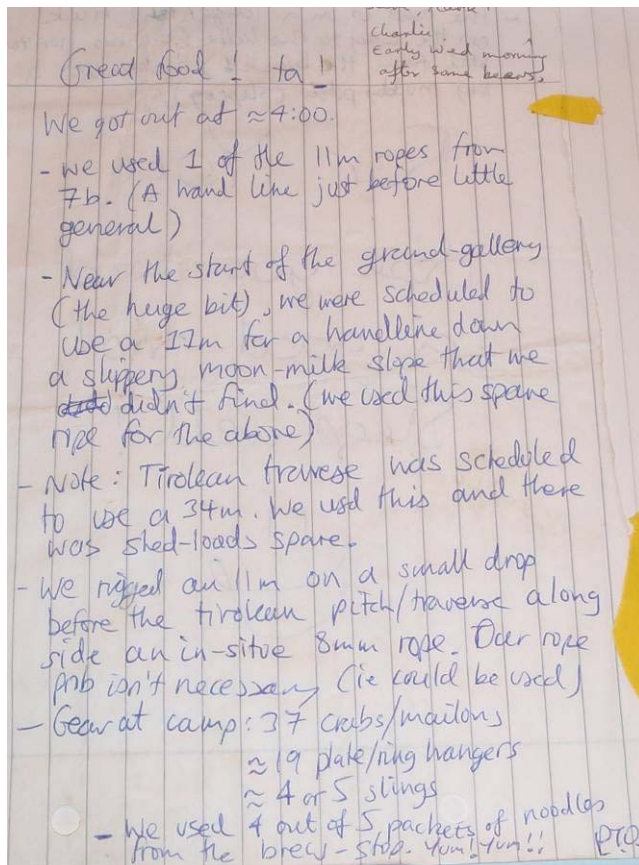 charlie
Early wed morning
after some beers.
Great food! ta!
We got out at ≈4:00.
- we used 1 of the 11m ropes from
7b. (A hand line just before little
general)
- Near the start of the grand-gallery
(the huge bit), we were scheduled to
use a 11m for a handline down
a slippery moon-milk slope that we
didn't find. (we used this spare
rope for the above)
- Note: Tirolean traverse was scheduled
to use a 34m. We usd this and there
was shed-loads spare.
- We rigged an 11m on a small drop
before the tirolean pitch/traverse along
side an in-situe 8mm rope. Our rope
prob isn't necessary (ie could be used)
- Gear at camp: 37 crabs/mailons
≈ 19 plate/ring hangers
≈ 4 or 5 slings
- We used 4 out of 5 packets of noodles
from the brew-stop. Yum! Yum!!
PTO